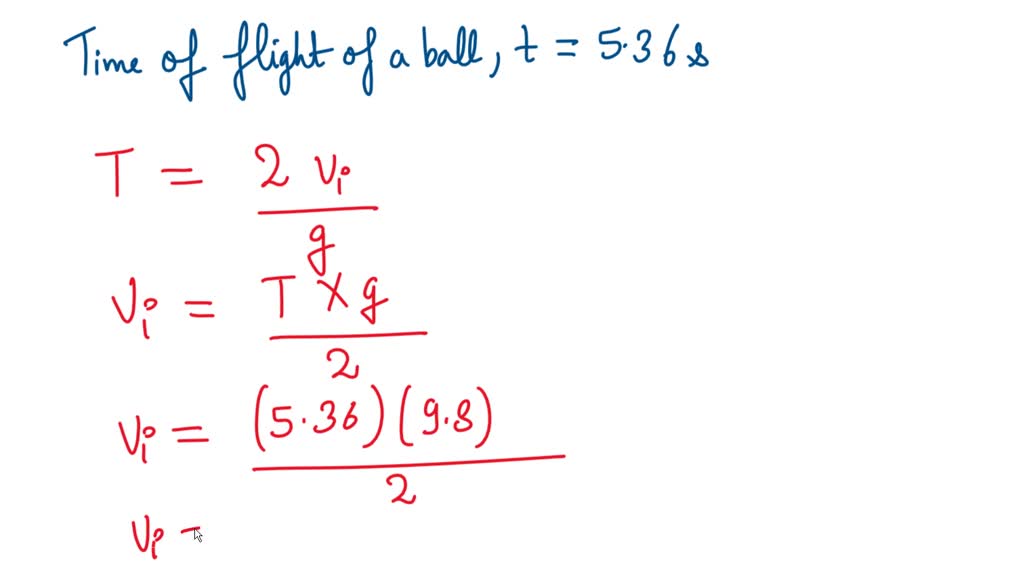 Time of flight of a ball, t = 5.36 s
T = 2 vi
g
vi = T × g
2
vi = (5.36)(9.8)
2
vi =